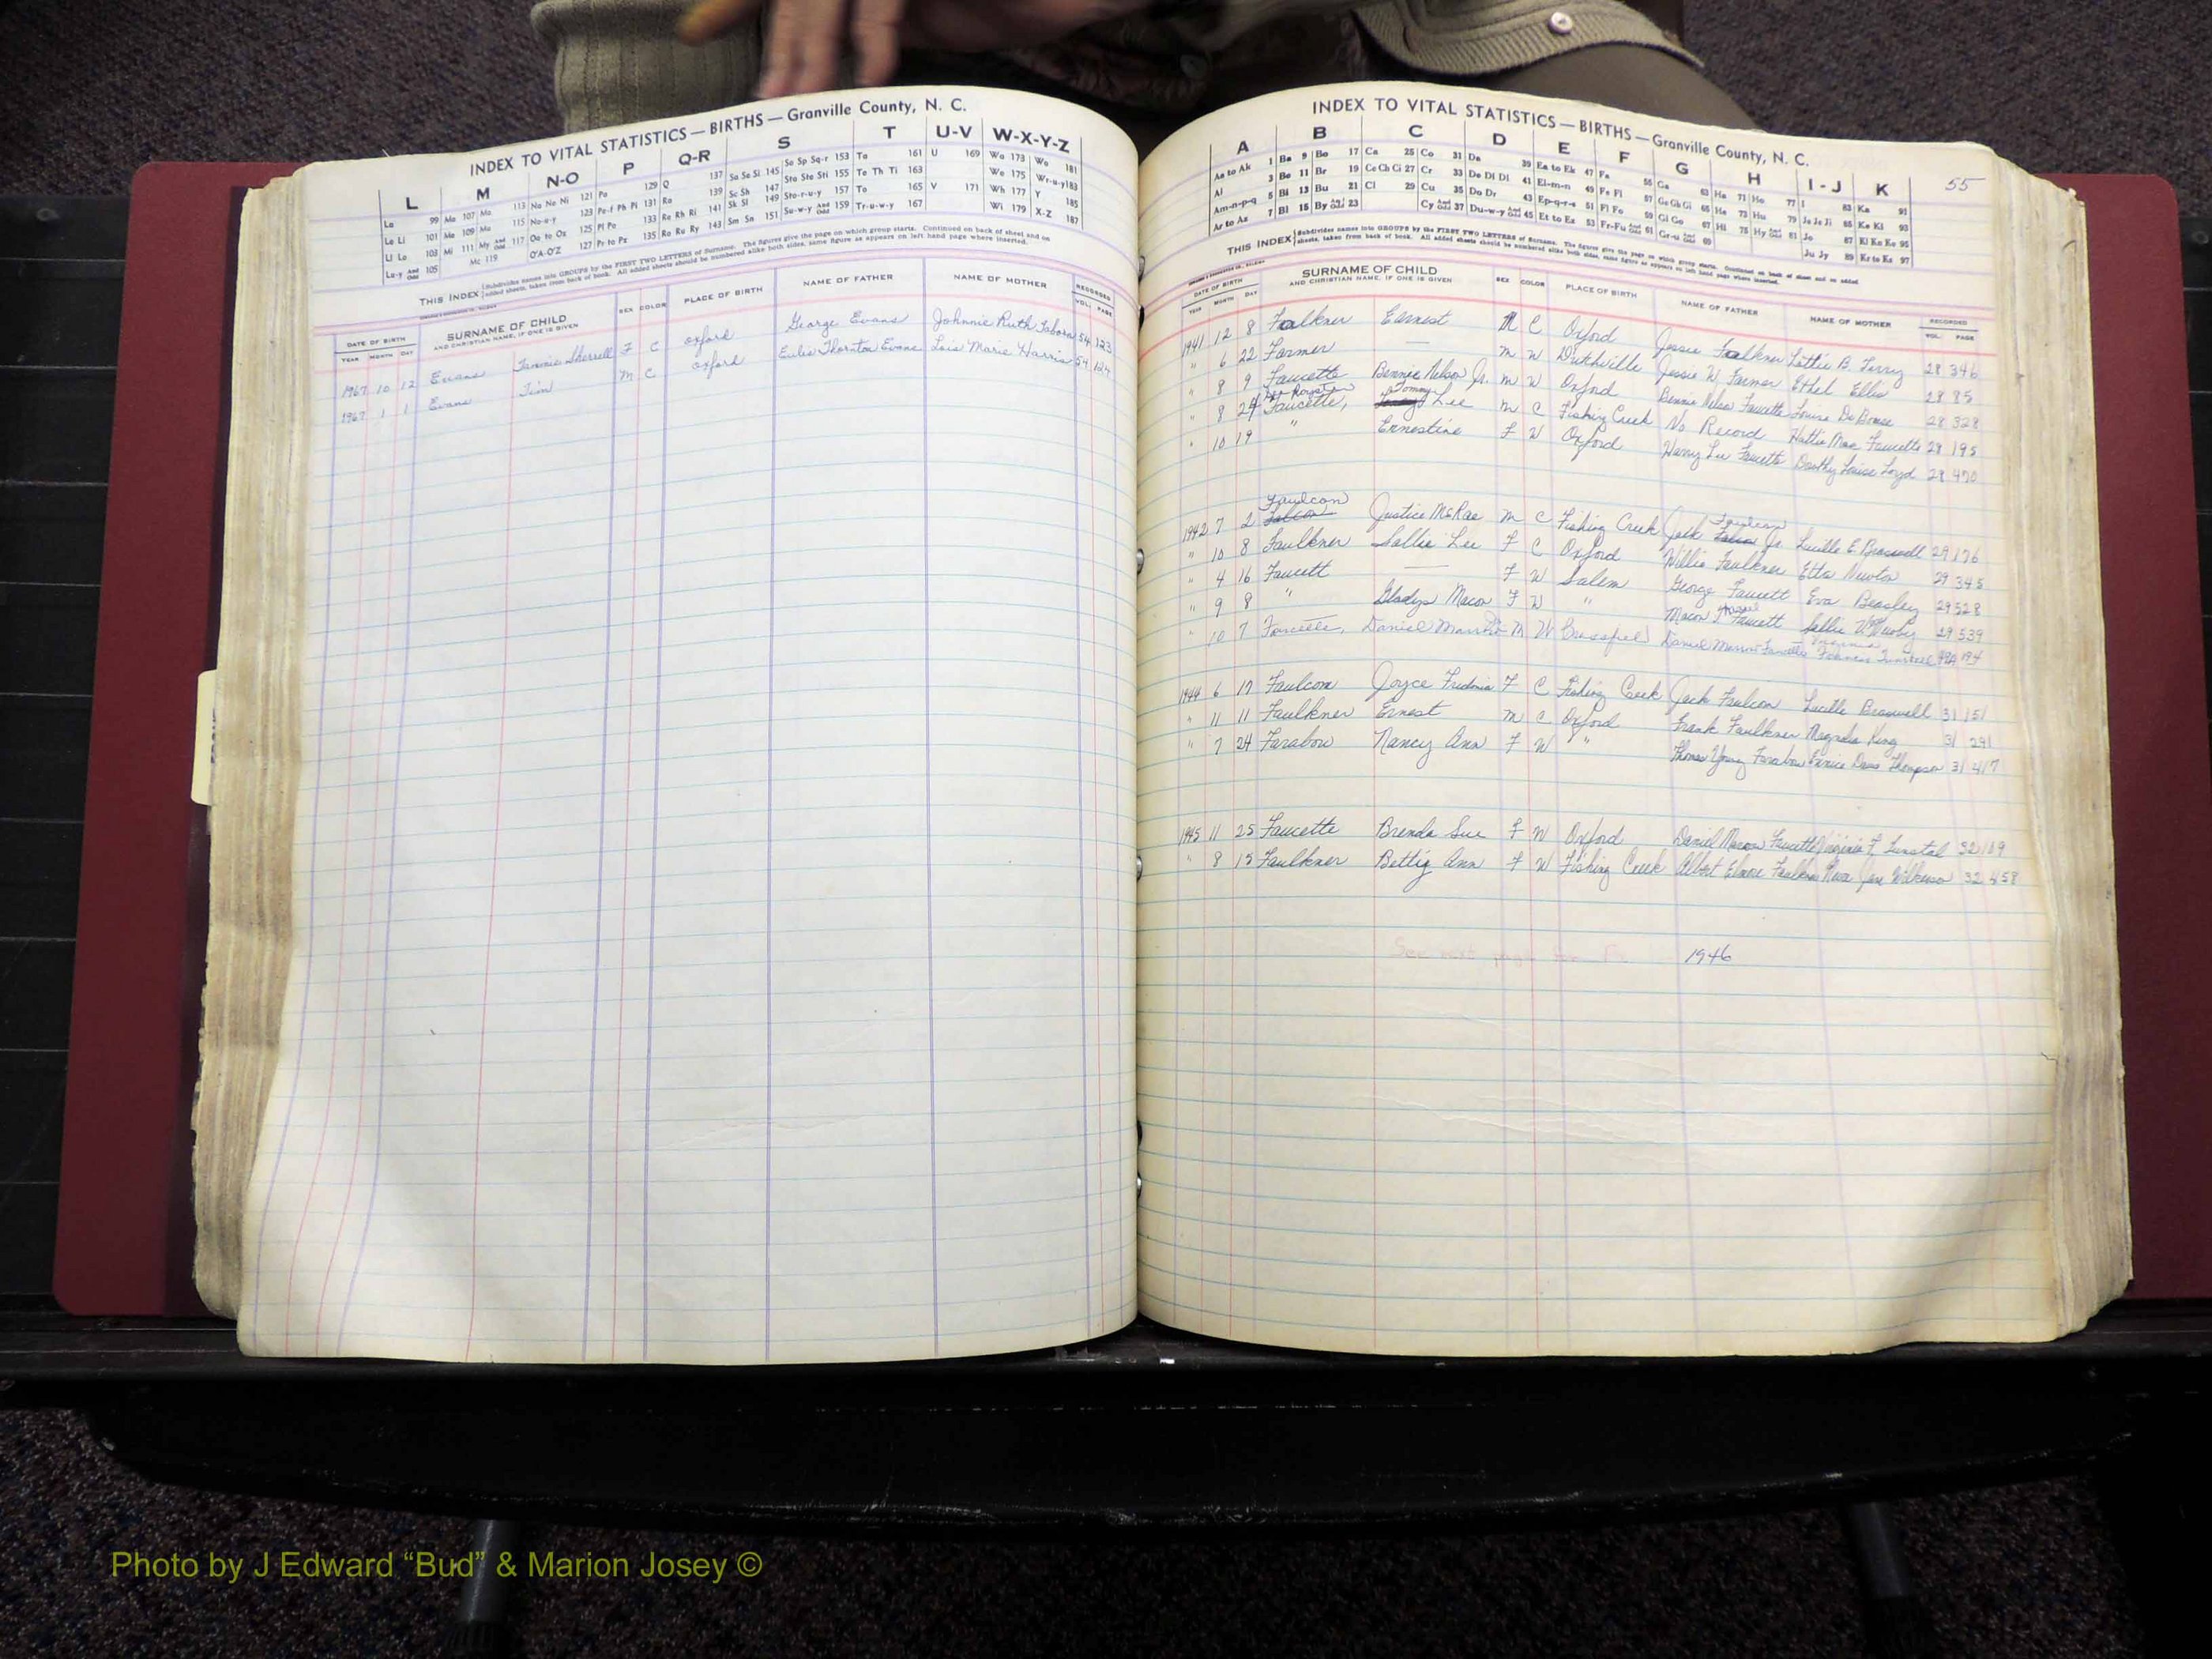 INDEX TO VITAL STATISTICS — BIRTHS — Granville County, N. C.
L M N-O P Q-R S T U-V W-X-Y-Z
La 99 Ma 107 Mo 113 Na Ne Ni 121 Pa 129 Q 137 Sa Se Si 145 So Sp Sq-r 153 Ta 161 U 169 Wa 173 Wo 181
Le Li 101 Me 109 Mu 115 No-u-y 123 Pe-f Ph Pi 131 Ra 139 Sc Sh 147 Sta Ste Sti 155 Te Th Ti 163 We 175 Wr-u-y 183
Ll Lo 103 Mi 111 My And Odd 117 Oa to Oz 125 Pl Po 133 Re Rh Ri 141 Sk Sl 149 Sto-r-u-y 157 To 165 V 171 Wh 177 Y 185
Lu-y And Odd 105 Mc 119 O'A-O'Z 127 Pr to Pz 135 Ro Ru Ry 143 Sm Sn 151 Su-w-y And Odd 159 Tr-u-w-y 167 Wi 179 X-Z 187
THIS INDEX Subdivides names into GROUPS by the FIRST TWO LETTERS of Surname. The figures give the page on which group starts. Continued on back of sheet and on
added sheets, taken from back of book. All added sheets should be numbered alike both sides, same figure as appears on left hand page where inserted.
DATE OF BIRTH SURNAME OF CHILD SEX COLOR PLACE OF BIRTH NAME OF FATHER NAME OF MOTHER RECORDED
YEAR MONTH DAY AND CHRISTIAN NAME, IF ONE IS GIVEN VOL. PAGE
1967 10 12 Evans Tammie Sherrell F C Oxford George Evans Johnnie Ruth Taborn 54 123
1967 1 1 Evans Tim M C Oxford Eulis Thornton Evans Lois Marie Harris 54 124
INDEX TO VITAL STATISTICS — BIRTHS — Granville County, N. C.
55
A B C D E F G H I-J K
Aa to Ak 1 Ba 9 Bo 17 Ca 25 Co 31 Da 39 Ea to Ek 47 Fa 55 Ga 63 Ha 71 Ho 77 I 83 Ka 91
Al 3 Be 11 Br 19 Ce Ch Ci 27 Cr 33 De Di Dl 41 El-m-n 49 Fe Fi 57 Ge Gh Gi 65 He 73 Hu 79 Ja Je Ji 85 Ke Ki 93
Am-n-p-q 5 Bi 13 Bu 21 Cl 29 Cu 35 Do Dr 43 Ep-q-r-s 51 Fl Fo 59 Gl Go 67 Hi 75 Hy And Odd 81 Jo 87 Kl Kn Ko 95
Ar to Az 7 Bl 15 By And Odd 23 Cy And Odd 37 Du-w-y And Odd 45 Et to Ez 53 Fr-Fu And Odd 61 Gr-u And Odd 69 Ju Jy 89 Kr to Kz 97
THIS INDEX Subdivides names into GROUPS by the FIRST TWO LETTERS of Surname. The figures give the page on which group starts. Continued on back of sheet and on added
sheets, taken from back of book. All added sheets should be numbered alike both sides, same figure as appears on left hand page where inserted.
DATE OF BIRTH SURNAME OF CHILD SEX COLOR PLACE OF BIRTH NAME OF FATHER NAME OF MOTHER RECORDED
YEAR MONTH DAY AND CHRISTIAN NAME, IF ONE IS GIVEN VOL. PAGE
1941 12 8 Faulkner Earnest M C Oxford Jessie Faulkner Lottie B. Terry 28 346
" 6 22 Farmer — M W Dutchville Jessie W. Farmer Ethel Ellis 28 85
" 8 9 Faucette Bennie Nelson Jr. M W Oxford Bennie Nelson Faucette Louise De Bouse 28 328
Royster Tommy
" 8 24 Faucette, Lee M C Fishing Creek No Record Hattie Mae Faucette 28 195
" 10 19 " Ernestine F W Oxford Harry Lee Faucette Dorothy Louise Loyd 28 470
Faulcon Faulcon
1942 7 2 Falcon Justice McRae M C Fishing Creek Jack Falcon Jr. Lucille E. Braswell 29 176
" 10 8 Faulkner Sallie Lee F C Oxford Willie Faulkner Etta Newton 29 345
" 4 16 Faucett — F W Salem George Faucett Eva Beasley 29 528
" 9 8 " Gladys Macon F W " Macon Faucett Sallie 29 539
" 10 7 Faucette, Daniel M W Brassfield Daniel Macon Faucette 194
1944 6 17 Faulcon Joyce Fredonia F C Fishing Creek Jack Faulcon Lucille Braswell 31 151
" 11 11 Faulkner Ernest M C Oxford Frank Faulkner Magnolia King 31 291
" 7 24 Farabow Nancy Ann F W " Thomas Young Farabow Eunice Davis Thompson 31 417
1945 11 25 Faucette Brenda Sue F W Oxford Daniel Macon Faucette Virginia F. Tunstal 32 109
" 8 15 Faulkner Bettie Ann F W Fishing Creek Albert Elmore Faulkner Neva Jane Wilkerson 32 458
See next page for Fa 1946
Photo by J Edward “Bud” & Marion Josey ©